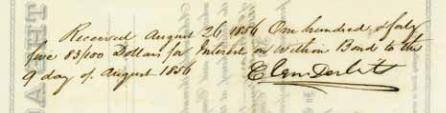 Received August 26 1856 One hundred & forty
five 83/100 Dollars for Interest on within Bond to the
9 day of August 1856